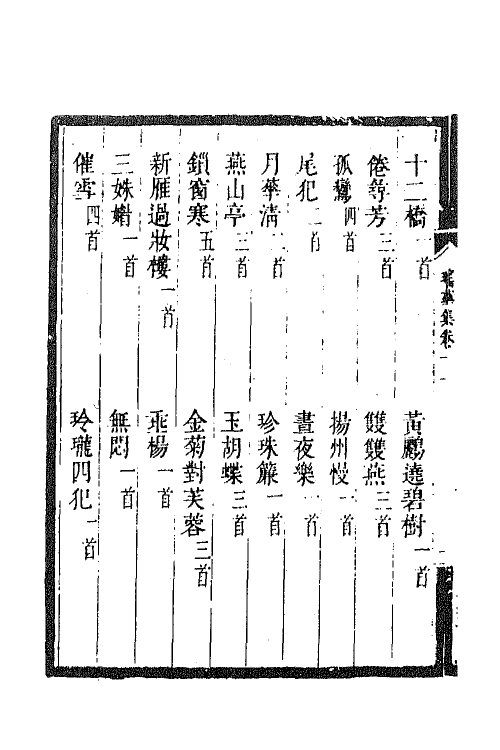 十二橋一首　黃鸝遶碧樹一首
倦尋芳三首　雙雙燕三首
孤鸞四首　揚州慢一首
尾犯　首　晝夜樂一首
月華清二首　珍珠簾一首
燕山亭三首　玉胡蝶三首
鎖窗寒五首　金菊對芙蓉三首
新雁過妝樓一首　垂楊一首
三姝媚一首　無悶一首
催雪四首　玲瓏四犯一首
瑤華集卷